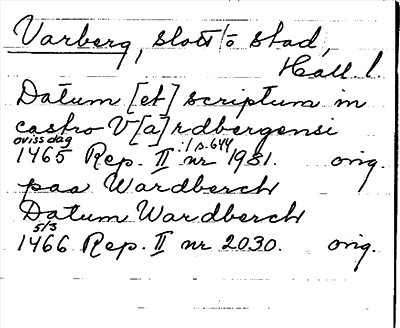 Varberg, slott o stad,
Hall l.
Datum [et] scriptum in
castro V[a]rdbergensi
oviss dag
1465 Rep. II :1 s. 644 nr 1981. orig.
paa Wardberch
Datum Wardberch
5/3
1466 Rep. II nr 2030. orig.